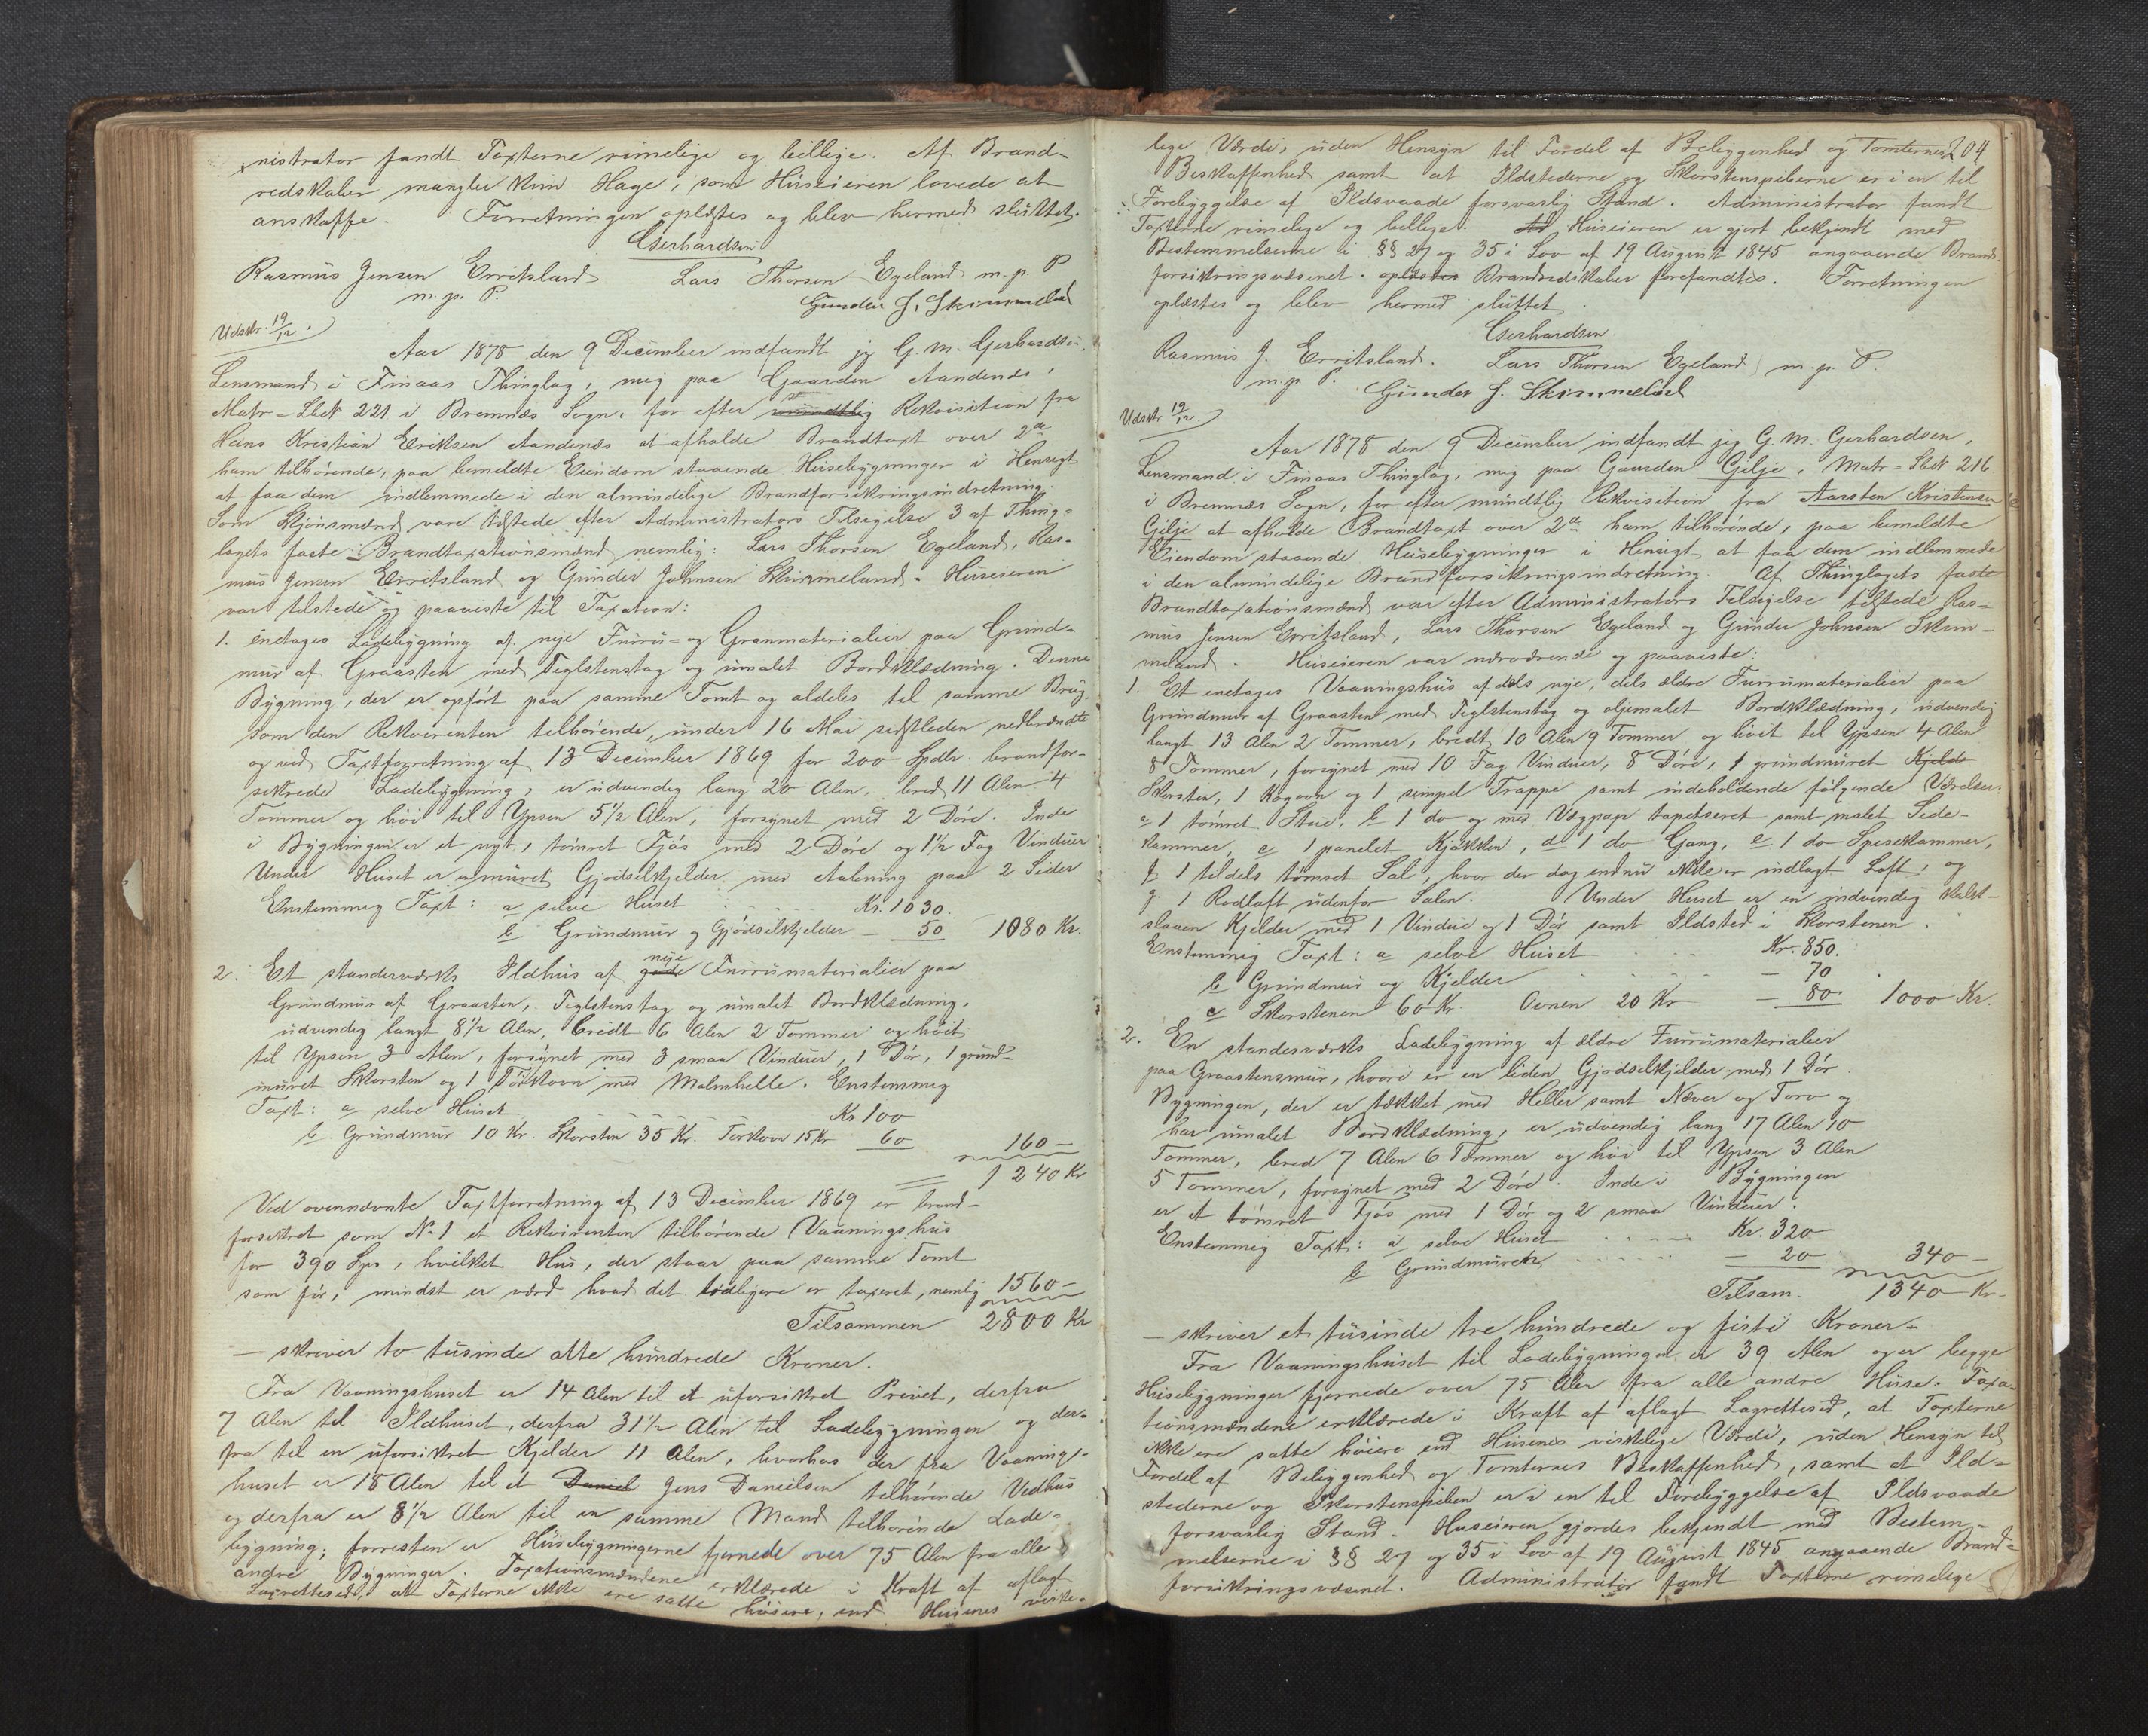 nistrator fandt Taxterne rimelige og billige. Af Brand-
redskaber mangler kun Hage, som Huseieren lovede at
anskaffe. Forretningen oplæstes og blev hermed sluttet.
Gerhardsen
Rasmus Jensen Erritsland Lars Thorsen Egeland m. p. P
m. p. P. Gunder J. Skimmeland
Udskr. 19/12.
Aar 1878 den 9 December indfandt jeg G. M. Gerhardsen,
Lensmand i Finaas Thinglag, mig paa Gaarden Aandenæs,
Matr-Lbr 221 i Bremnæs Sogn, for efter mundtlig Rekvisition fra
Hans Kristian Eriksen Aandenæs at afholde Brandtaxt over 2de
ham tilhørende, paa bemeldte Eiendom staaende Husebygninger i Hensigt
at faa dem indlemmede i den almindelige Brandforsikringsindretning.
Som Skjønsmænd vare tilstede efter Administrators Tilsigelse 3 af Thing-
lagets faste Brandtaxationsmænd nemlig: Lars Thorsen Egeland, Ras-
mus Jensen Erritsland og Gunder Johnsen Skimmeland. Huseieren
var tilstede og paaviste til Taxation:
1. enetages Ladebygning af nye Furru- og Granmaterialier paa Grund-
mur af Graasten med Teglstenstag og umalet Bordklædning. Denne
Bygning, der er opført paa samme Tomt og aldeles til samme Brug,
som den Rekvirenten tilhørende, under 16 Mai sidstleden nedbrændte
og ved Taxtforretning af 13 December 1869 for 200 Spdlr. brandfor-
sikrede Ladebygning, er udvendig lang 20 Alen, bred 11 Alen 4
Tommer og høi til Ypsen 5 1/2 Alen, forsynet med 2 Døre. Inde
i Bygningen er et nyt, tømret Fjøs med 2 Døre og 1 1/2 Fag Vinduer
Under Huset er en muret Gjødselkjelder med Aabning paa 2 Sider
Enstemmig Taxt: a selve Huset Kr. 1030.
b Grundmur og Gjødselkjelder — 50 1080 Kr.
2. Et standerværks Ildhus af gode nye Furrumaterialier paa
Grundmur af Graasten, Teglstenstag og umalet Bordklædning,
udvendig langt 8 1/2 Alen, bredt 6 Alen 2 Tommer og høit
til Ypsen 3 Alen, forsynet med 3 smaa Vinduer, 1 Dør, 1 grund-
muret Skorsten og 1 Tørkovn med Malmhelle. Enstemmig
Taxt: a selve Huset Kr 100
b Grundmur 10 Kr. Skorsten 35 Kr. Tørkovn 15 Kr 60 160 —
1240 Kr
Ved ovennævnte Taxtforretning af 13 December 1869 er brand-
forsikret som No 1 et Rekvirenten tilhørende Vaaningshus
for 390 Spd, hvilket Hus, der staar paa samme Tomt
som før, mindst er værd hvad det tidligere er taxeret, nemlig 1560 —
Tilsammen 2800 Kr
— skriver to tusinde otte hundrede Kroner.
Fra Vaaningshuset er 14 Alen til et uforsikret Privet, derfra
7 Alen til Ildhuset, derfra 31 1/2 Alen til Ladebygningen og der-
fra til en uforsikret Kjelder 11 Alen, hvorhos der fra Vaanings-
huset er 18 Alen til et Daniel Jens Danielsen tilhørende Vedhus
og derfra er 8 1/2 Alen til en samme Mand tilhørende Lade-
bygning; forresten er Husebygningerne fjernede over 75 Alen fra alle
andre Bygninger. Taxationsmændene erklærede i Kraft af aflagt
Lagrettesed, at Taxterne ikke ere satte høiere, end Husenes virke-
lige Værdi, uden Hensyn til Fordel af Beliggenhed og Tomternes 204
Beskaffenhed samt at Ildstederne og Skorstenspiberne er i en til
Forebyggelse af Ildsvaade forsvarlig Stand. Administrator fandt
Taxterne rimelige og billige. Huseieren er gjort bekjendt med
Bestemmelserne i §§ 27 og 35 i Lov af 19 August 1845 angaaende Brand-
forsikringsvæsenet. oplæstes Brandredskaber forefandtes. Forretningen
oplæstes og blev hermed sluttet.
Gerhardsen
Rasmus J. Erritsland. Lars Thorsen Egeland m. p. P.
m. p. P. Gunder J. Skimmeland
Udskr 19/12
Aar 1878 den 9 December indfandt jeg G. M. Gerhardsen,
Lensmand i Finaas Thinglag, mig paa Gaarden Gilje, Matr-Lbr 216
i Bremnæs Sogn, for efter mundtlig Rekvisition fra Aarsten Kristensen
Gilje at afholde Brandtaxt over 2de ham tilhørende, paa bemeldte
Eiendom staaende Husebygninger i Hensigt at faa dem indlemmede
i den almindelige Brandforsikringsindretning. Af Thinglagets faste
Brandtaxationsmænd var efter Administrators Tilsigelse tilstede Ras-
mus Jensen Erritsland, Lars Thorsen Egeland og Gunder Johnsen Skim-
meland. Huseieren var nærværende og paaviste:
1. Et enetages Vaaningshus af dels nye, dels ældre Furrumaterialier paa
Grundmur af Graasten med Teglstenstag og oljemalet Bordklædning, udvendig
langt 13 Alen 2 Tommer, bredt 10 Alen 9 Tommer og høit til Ypsen 4 Alen
8 Tommer, forsynet med 10 Fag Vinduer, 8 Døre, 1 grundmuret Kjelde
Skorsten, 1 Kogovn og 1 simpel Trappe samt indeholdende følgende Værelser:
a 1 tømret Stue, b 1 do og med Vægpap tapetseret samt malet Side-
kammer, c 1 panelet Kjøkken, d 1 do Gang, e 1 do Spisekammer,
f 1 tildels tømret Sal, hvor der dog endnu ikke er indlagt Loft, og
g 1 Rodloft udenfor Salen. Under Huset er en indvendig kalk-
slaaen Kjelder med 1 Vindue og 1 Dør samt Ildsted i Skorstenen.
Enstemmig Taxt: a selve Huset Kr. 850.
b Grundmur og Kjelder — 70
c Skorstenen 60 Kr. Ovnen 20 Kr — 80 1000 Kr.
2. En standerværks Ladebygning af ældre Furrumaterialier
paa Graastensmur, hvori er en liden Gjødselkjelder med 1 Dør.
Bygningen, der er tækket med Heller samt Næver og Torv og
har umalet Bordklædning, er udvendig lang 17 Alen 10
Tommer, bred 7 Alen 6 Tommer og høi til Ypsen 3 Alen
5 Tommer, forsynet med 2 Døre. Inde i Bygningen
er et tømret Fjøs med 1 Dør og 2 smaa Vinduer.
Enstemmig Taxt: a selve Huset Kr. 320
b Grundmuren — 20 340 —
Tilsam. 1340 Kr.
— skriver et tusinde tre hundrede og firti Kroner —
Fra Vaaningshuset til Ladebygningen er 39 Alen og er begge
Husebygninger fjernede over 75 Alen fra alle andre Huse. Taxa-
tionsmændene erklærede i Kraft af aflagt Lagrettesed, at Taxterne
ikke ere satte høiere end Husenes virkelige Værdi, uden Hensyn til
Fordel af Beliggenhed og Tomternes Beskaffenhed, samt at Ild-
stederne og Skorstenspiben er i en til Forebyggelse af Ildsvaade
forsvarlig Stand. Huseieren gjordes bekjendt med Bestem-
melserne i §§ 27 og 35 i Lov af 19 August 1845 angaaende Brand-
forsikringsvæsenet. Administrator fandt Taxterne rimelige